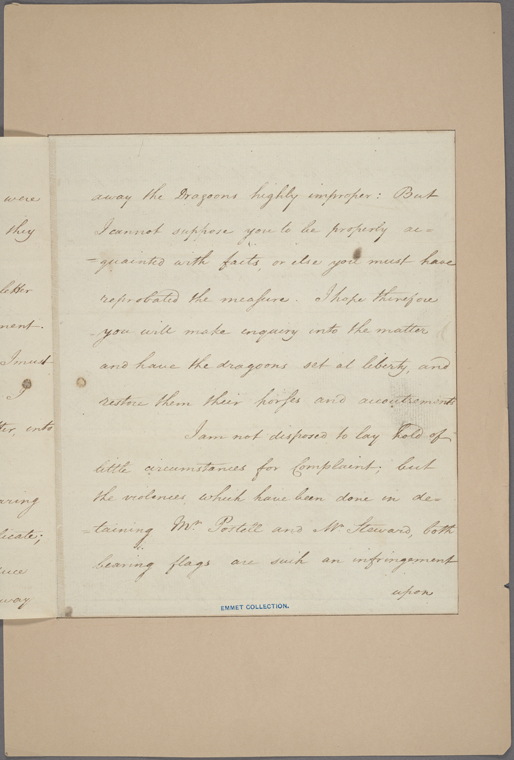 away the Dragoons highly improper: But
I cannot suppose you to be properly ac=
=quainted with facts, or else you must have
reprobated the measure. I hope therefore
you will make enquiry into the matter
and have the dragoons set at liberty, and
restore them their horses and accoutrements
I am not disposed to lay hold of
little circumstances for Complaint; but
the violences which have been done in de=
=taining Mr Postell and Mr Steward, both
bearing flags are such an infringement
upon
EMMET COLLECTION.
were
they
letter
I must
I
into
way